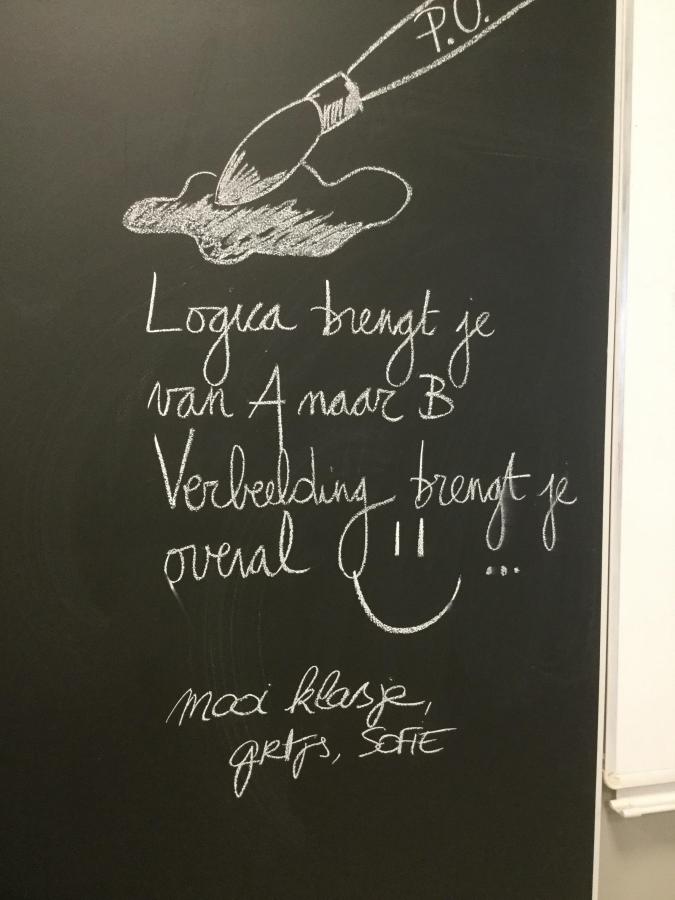 P.O.
Logica brengt je
van A naar B
Verbeelding brengt je
overal ...
mooi klasje,
grtjs, SOFIE